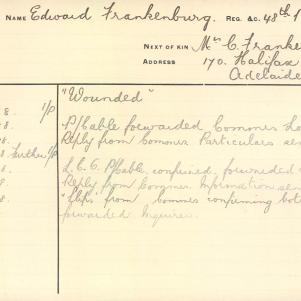 NAME Edward Frankenburg. REG. &C. 48th
NEXT OF KIN Mrs C. Franke
ADDRESS 170. Halifax
Adelaide
8. I/P "Wounded"
8. P/Cable forwarded Commes
8. Reply from Commes Particulars sen
8. Further I/P L.C.C. P/Cable. confirmed. forwarded
8. Reply from Information sen
8. "Slips" from Commes confirming bot
forwarded Inquirer.